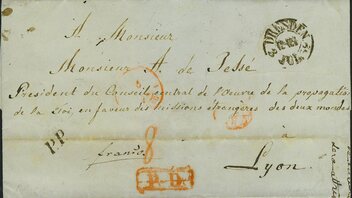 A Monsieur
DRESDEN
JUL.
Monsieur A de Jessé
President du Conseil central de l'Oeuvre de la propagation
de la Foi, en faveur des missions étrangères des deux mondes
à
PP
franco
8
Lyon
P.D.